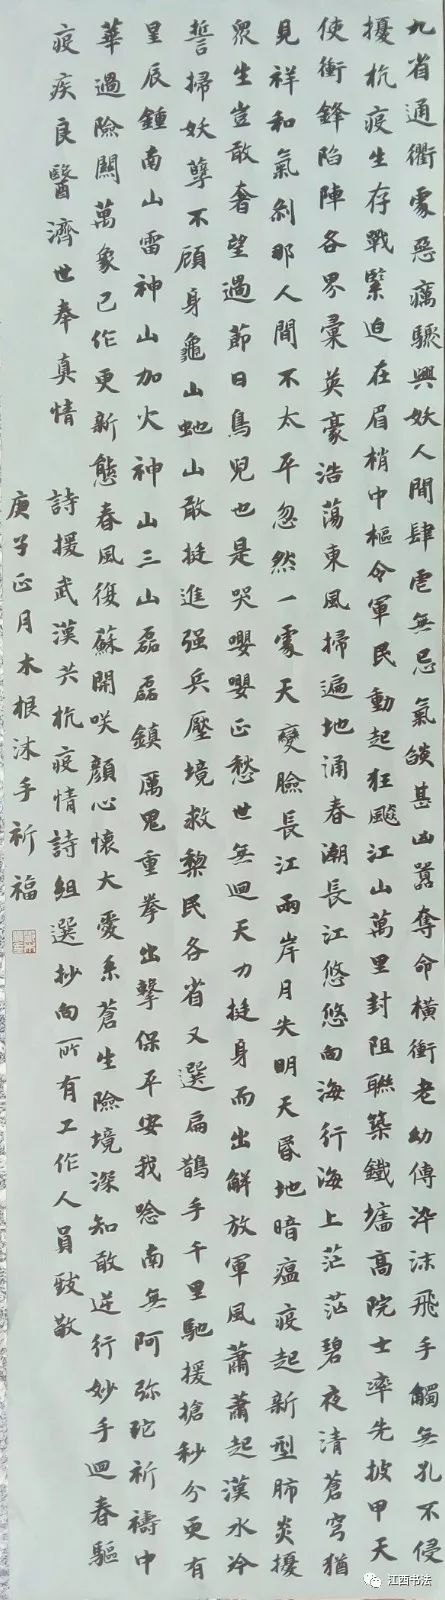 九省通衢處惡癘驟興妖人間肆虐無忌氣燄甚囟囂奪命橫衝老幼傳染沫飛手觸無孔不侵
擾抗疫生存戰緊迫在眉梢中樞令軍民動起狂飈江山萬里封阻聯築鐵墉高院士率先披甲天
使衝鋒陷陣各界彙英豪浩蕩東風掃遍地涌春潮長江悠悠向海行海上茫茫碧夜清蒼穹猶
見祥和氣刹那人間不太平忽然一處天變臉長江兩岸月失明天昏地暗瘟疫起新型肺炎擾
衆生豈敢奢望過節日鳥兒也是哭嚶嚶正愁世無迴天力挺身而出解放軍風蕭蕭起漢水冷
誓掃妖孽不顧身龜山虵山敢挺進强兵壓境救黎民各省又選扁鵲手千里馳援搶秒分更有
星辰鍾南山雷神山加火神山三山磊磊鎮厲鬼重拳出擊保平安我唸南無阿弥陀祈禱中
華過險關萬象已作更新態春風復蘇開咲顏心懷大愛系蒼生險境深知敢逆行妙手迴春驅
疫疾良醫濟世奉真情
詩援武漢共抗疫情詩組選抄向所有工作人員致敬
庚子正月木根沐手祈福
江西书法